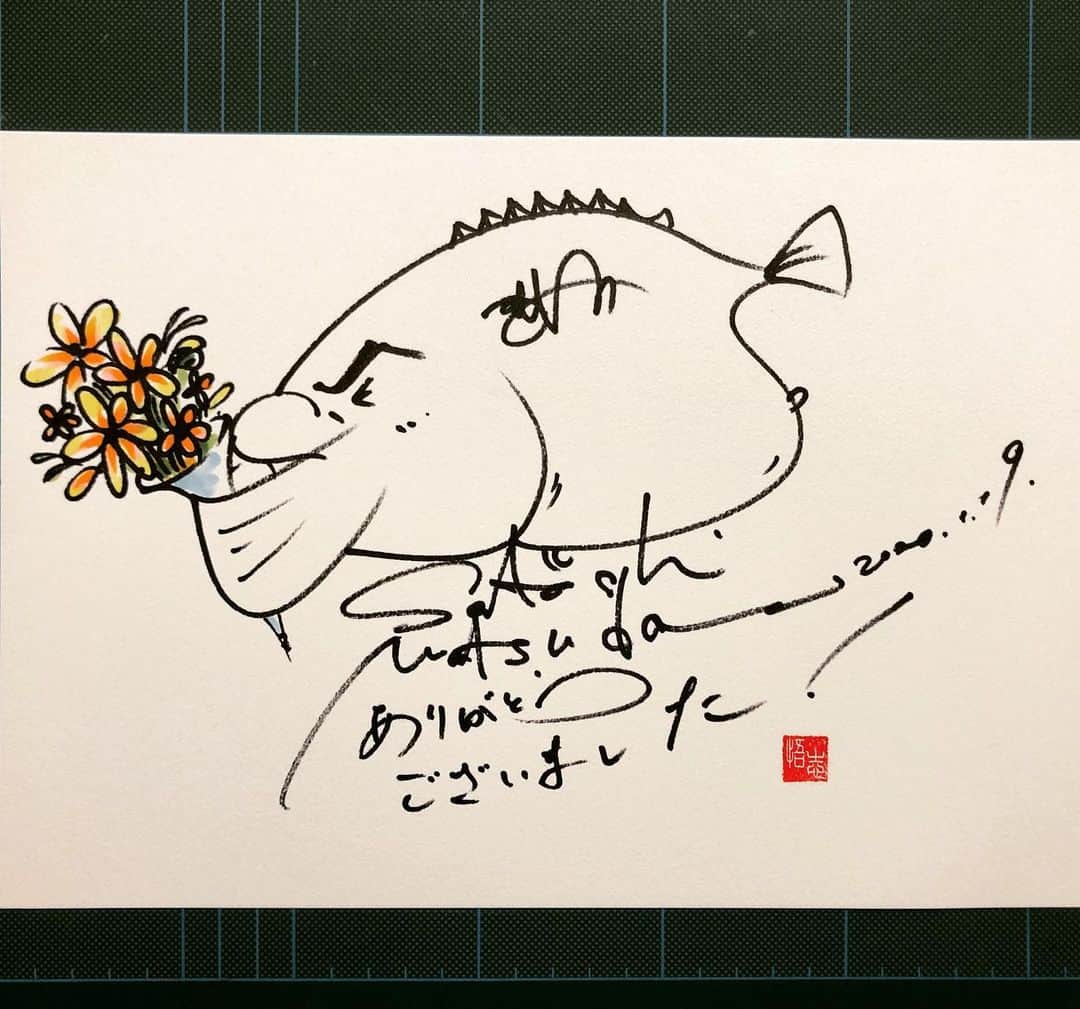 Satoshi
Matsuda 2020.
ありがとう
ございました!
悟志